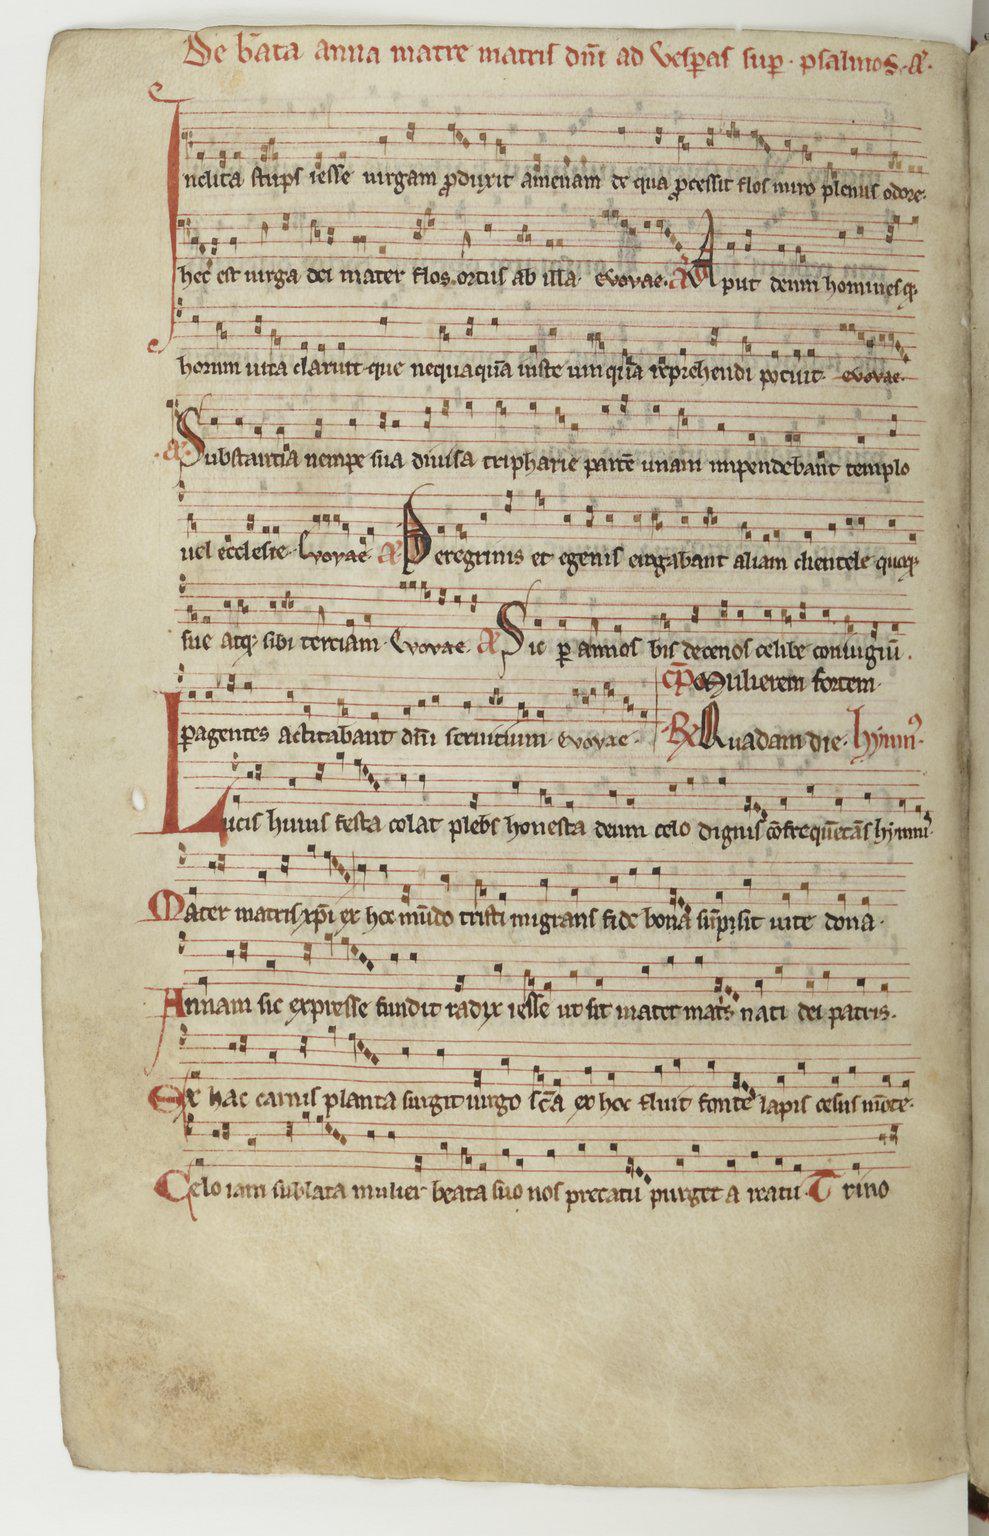 De b̄ata anna matre matris dn̄i ad vesꝑas suꝑ · psalmos · a̅.
Inclita stirps iesse uirgam ꝓduxit amenam de qua ꝓcessit flos miro plenus odore.
hec est uirga dei mater flos ortus ab illa · evovae · a̅ Aput deum homines q̨
horum uita claruit que nequaquā iuste umquā reprehendi potuit · evovae ·
a̅ Substantia nempe sua diuisa tripharie partē unam impendebant templo
uel ecclesie · Evovae · a̅ Peregrinis et egenis erogabant aliam clientele quoq̨
sue atq̨ sibi terciam · Evovae · a̅ Sic ꝑ annos bis decenos celibe coniugiū .
cp̄ Mulierem fortem ·
peragentes actitabant dn̄i seruitium · evovae · R̷ Quadam die · hymnꝰ
Lucis huius festa colat plebs honesta deum celo dignis cōfrequētās hymnis
Mater matris xp̄i ex hoc mūdo tristi migrans fide bona sūpsit uite dona ·
Annam sic expresse fundit radix iesse ut sit mater mat̄s nati dei patris .
Ex hac carnis planta surgit uirgo sc̄a ex hoc fluit fonte lapis cesus mōte ·
Celo iam sublata mulier beata suo nos precatu purget a reatu · Trino